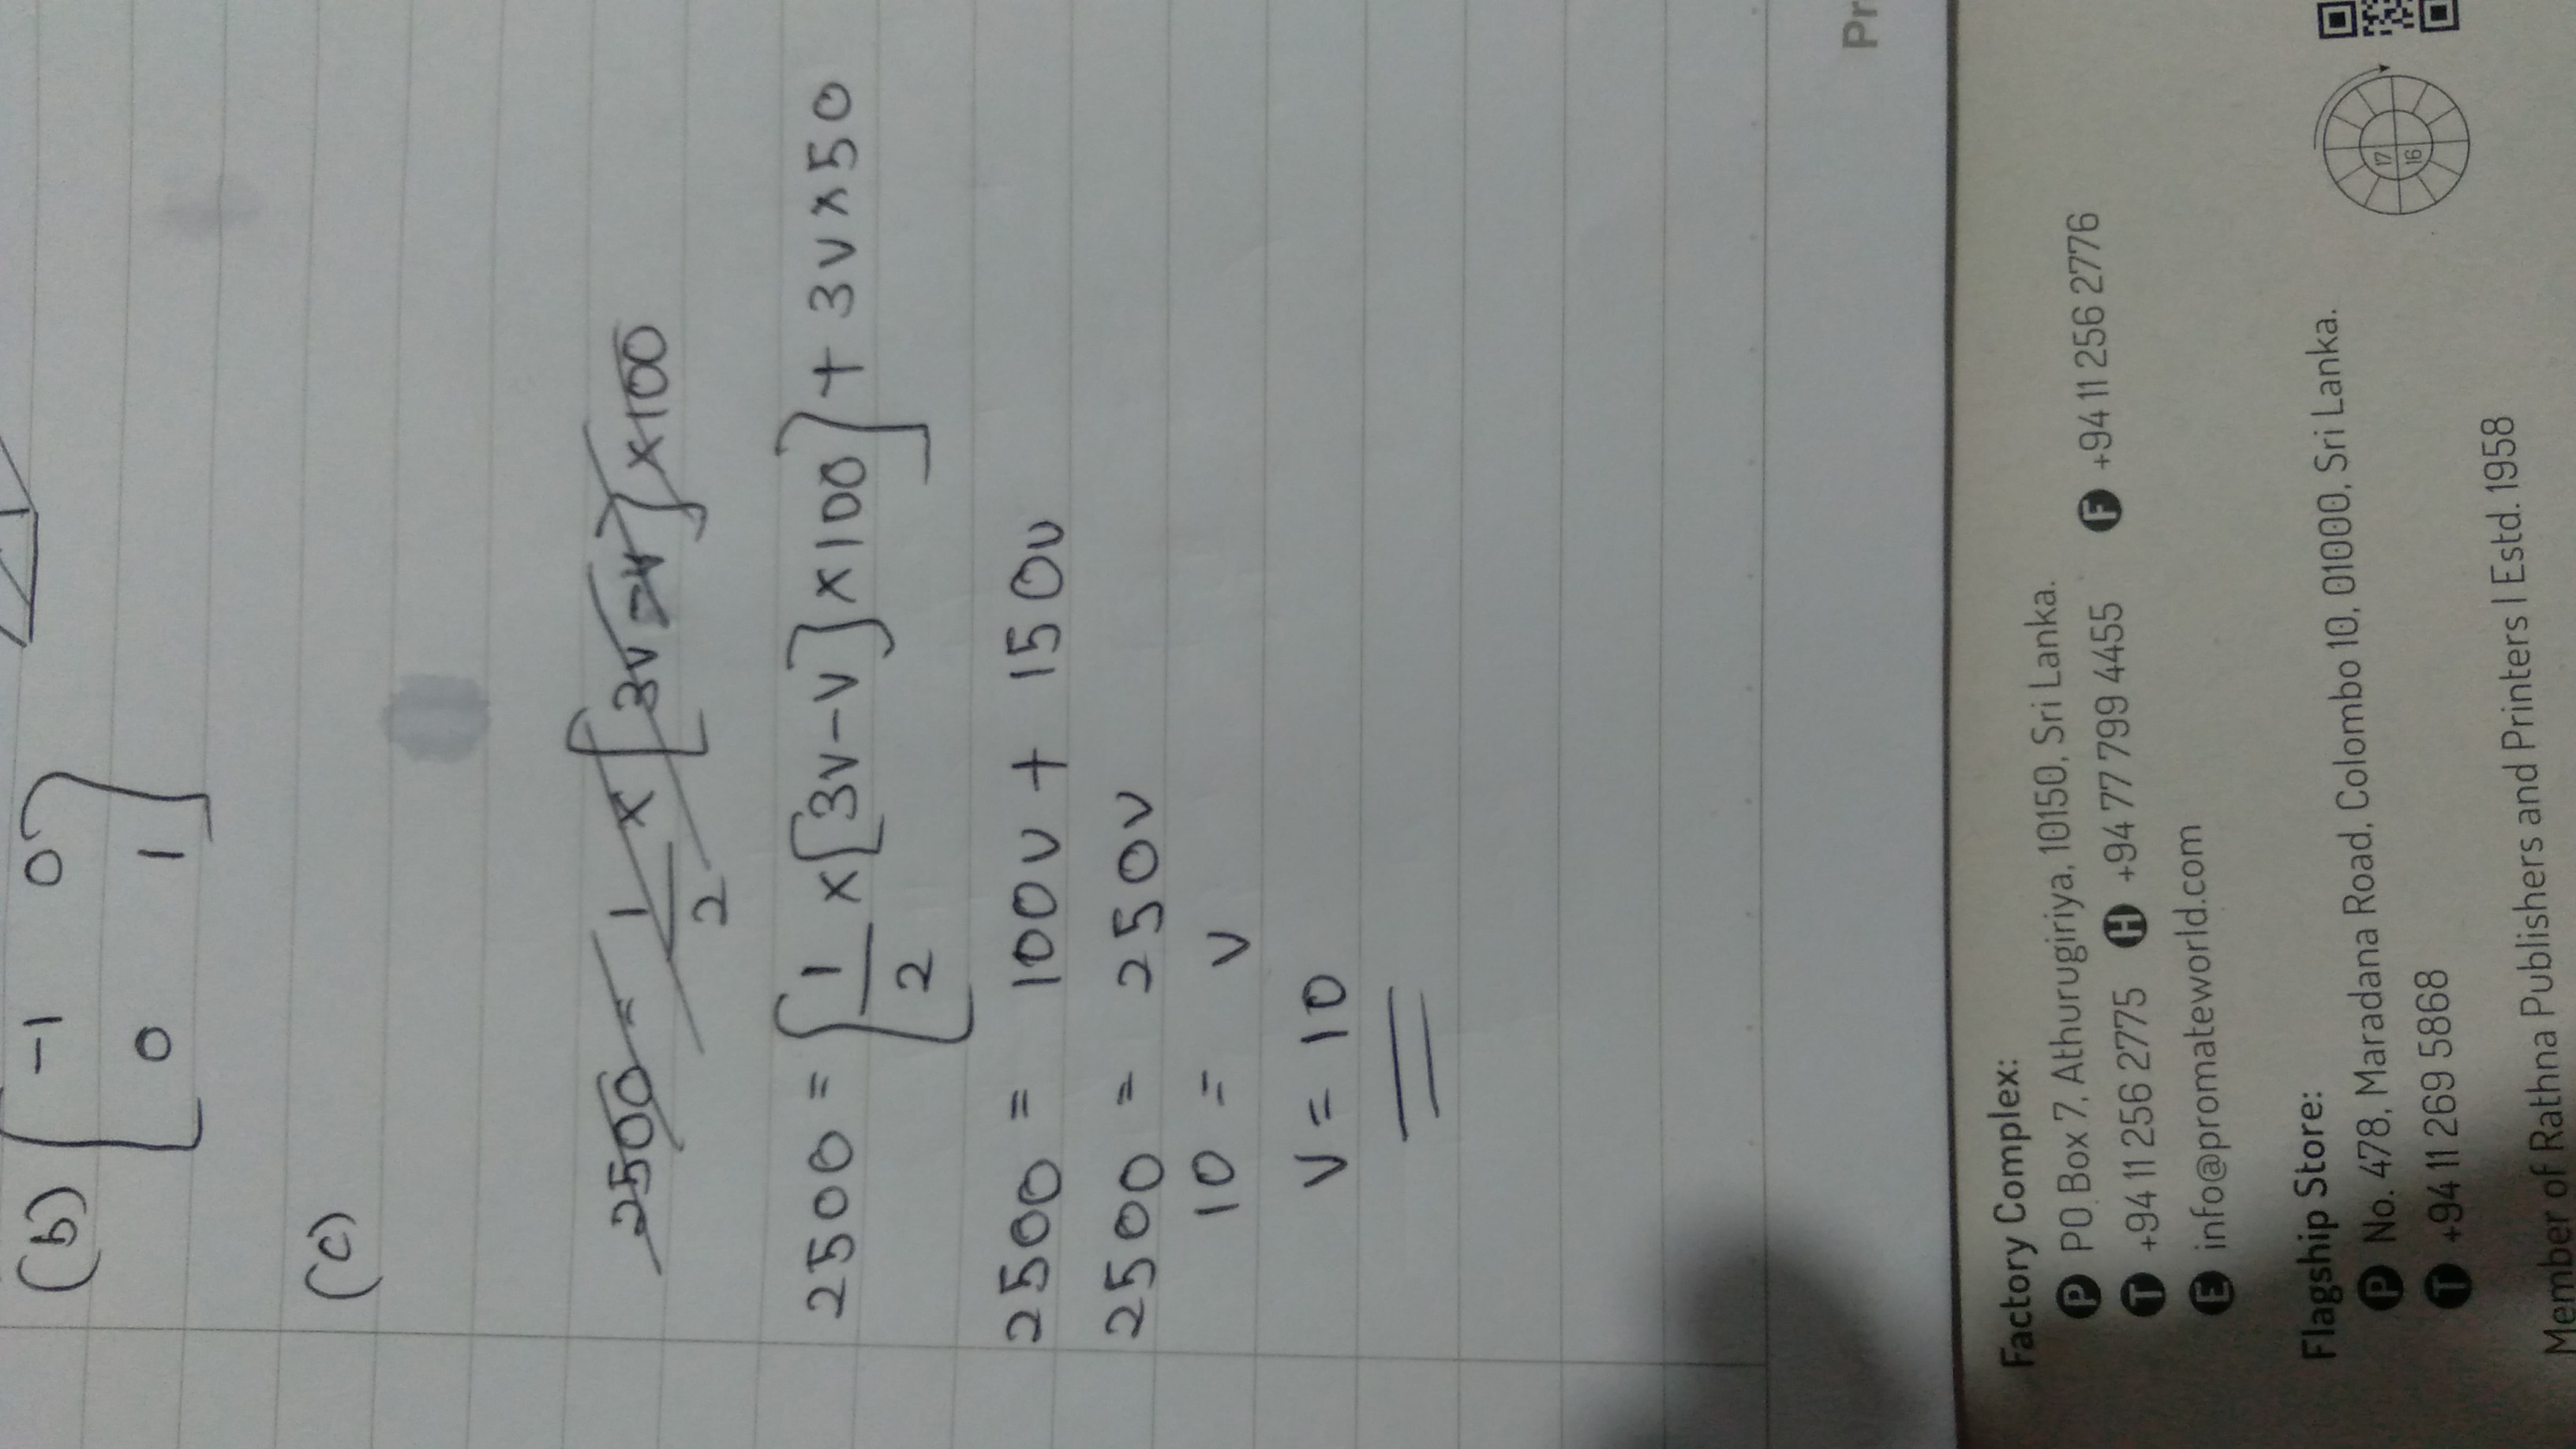 (b) [ -1 0
0 1 ]
(c)
2500 = 1/2 × [3v - v] × 100
2500 = [1/2 × [3v - v] × 100] + 3v × 50
2500 = 100v + 150v
2500 = 250v
10 = v
v = 10
Pr
Factory Complex:
P PO Box 7, Athurugiriya, 10150, Sri Lanka.
T +94 11 256 2775 H +94 77 799 4455 F +94 11 256 2776
E info@promateworld.com
Flagship Store:
P No. 478, Maradana Road, Colombo 10, 01000, Sri Lanka.
T +94 11 269 5868
17
16
Member of Rathna Publishers and Printers | Estd. 1958